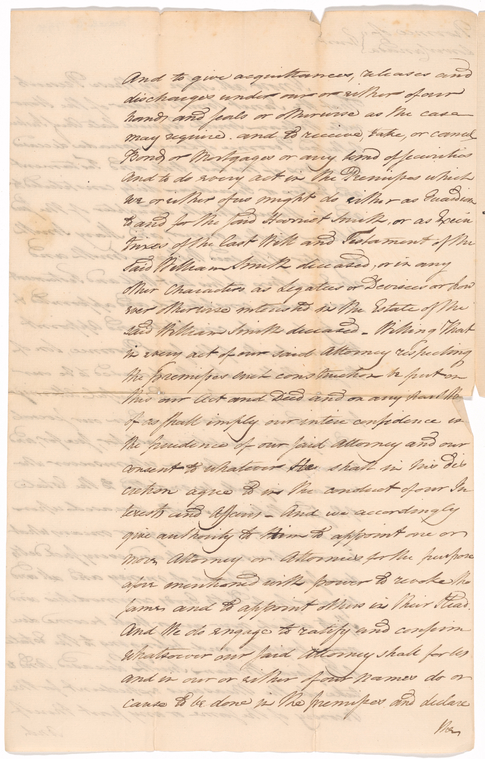 And to give acquittances, releases and
discharges under our or either of our
hands and seals or otherwise as the case
may require. and to receive take, or cancel
Bonds or Mortgages or any kind of securities
and to do every act in the Premises which
we or either of us might do either as Guardian
to and for the said Harriet Smith, or as Execu
trixes of the Last Will and Testament of the
Said William Smith deceased, or in any
other Characters as Legatees or Devisees or how
ever otherwise interested in the Estate of the
said William Smith deceased – Willing that
in every act of our said Attorney respecting
the Premises and construction put on
this our Act and Deed and on any
of us shall imply our intire confidence in
the Prudence of our said Attorney and our
consent to whatever He shall in his dis
cretion agree to in the conduct of our In
terests and Affairs – And we accordingly
give authority to Him to appoint one or
more Attorney or Attornies for the purpose
afore mentioned with power to revoke the
same and to appoint others in their Stead.
And We do engage to ratify and confirm
whatsoever our said Attorney shall for Us
and in our or either of our Names do or
cause to be done in the premises, and declare
the